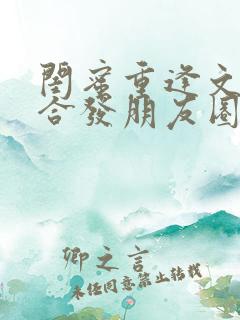 閨蜜重逢文
合發朋友圈
卿之言
未任同意禁止转载